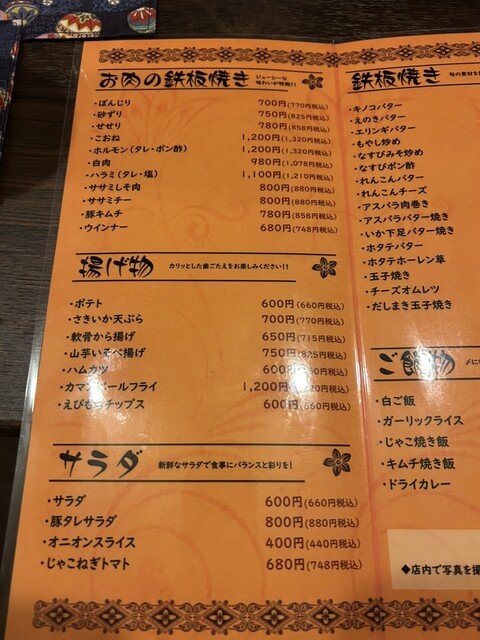 お肉の鉄板焼き ジューシーな味わいが特徴!!
・ぼんじり 700円(770円税込)
・砂ずり 750円(825円税込)
・せせり 780円(858円税込)
・こおね 1,200円(1,320円税込)
・ホルモン(タレ・ポン酢) 1,200円(1,320円税込)
・白肉 980円(1,078円税込)
・ハラミ(タレ・塩) 1,100円(1,210円税込)
・ササミしそ肉 800円(880円税込)
・ササミチー 800円(880円税込)
・豚キムチ 780円(858円税込)
・ウインナー 680円(748円税込)
揚げ物 カリッとした歯ごたえをお楽しみください!!
・ポテト 600円(660円税込)
・さきいか天ぷら 700円(770円税込)
・軟骨から揚げ 650円(715円税込)
・山芋いそべ揚げ 750円(825円税込)
・ハムカツ 600円(660円税込)
・カマンベールフライ 1,200円(1,320円税込)
・えびもちチップス 600円(660円税込)
サラダ 新鮮なサラダで食事にバランスと彩りを!
・サラダ 600円(660円税込)
・豚タレサラダ 800円(880円税込)
・オニオンスライス 400円(440円税込)
・じゃこねぎトマト 680円(748円税込)
鉄板焼き 旬の素材を
・キノコバター
・えのきバター
・エリンギバター
・もやし炒め
・なすびみそ炒め
・なすびポン酢
・れんこんバター
・れんこんチーズ
・アスパラ肉巻き
・アスパラバター焼き
・いか下足バター焼き
・ホタテバター
・ホタテホーレン草
・玉子焼き
・チーズオムレツ
・だしまき玉子焼き
ご飯物 〆に
・白ご飯
・ガーリックライス
・じゃこ焼き飯
・キムチ焼き飯
・ドライカレー
◆店内で写真を撮